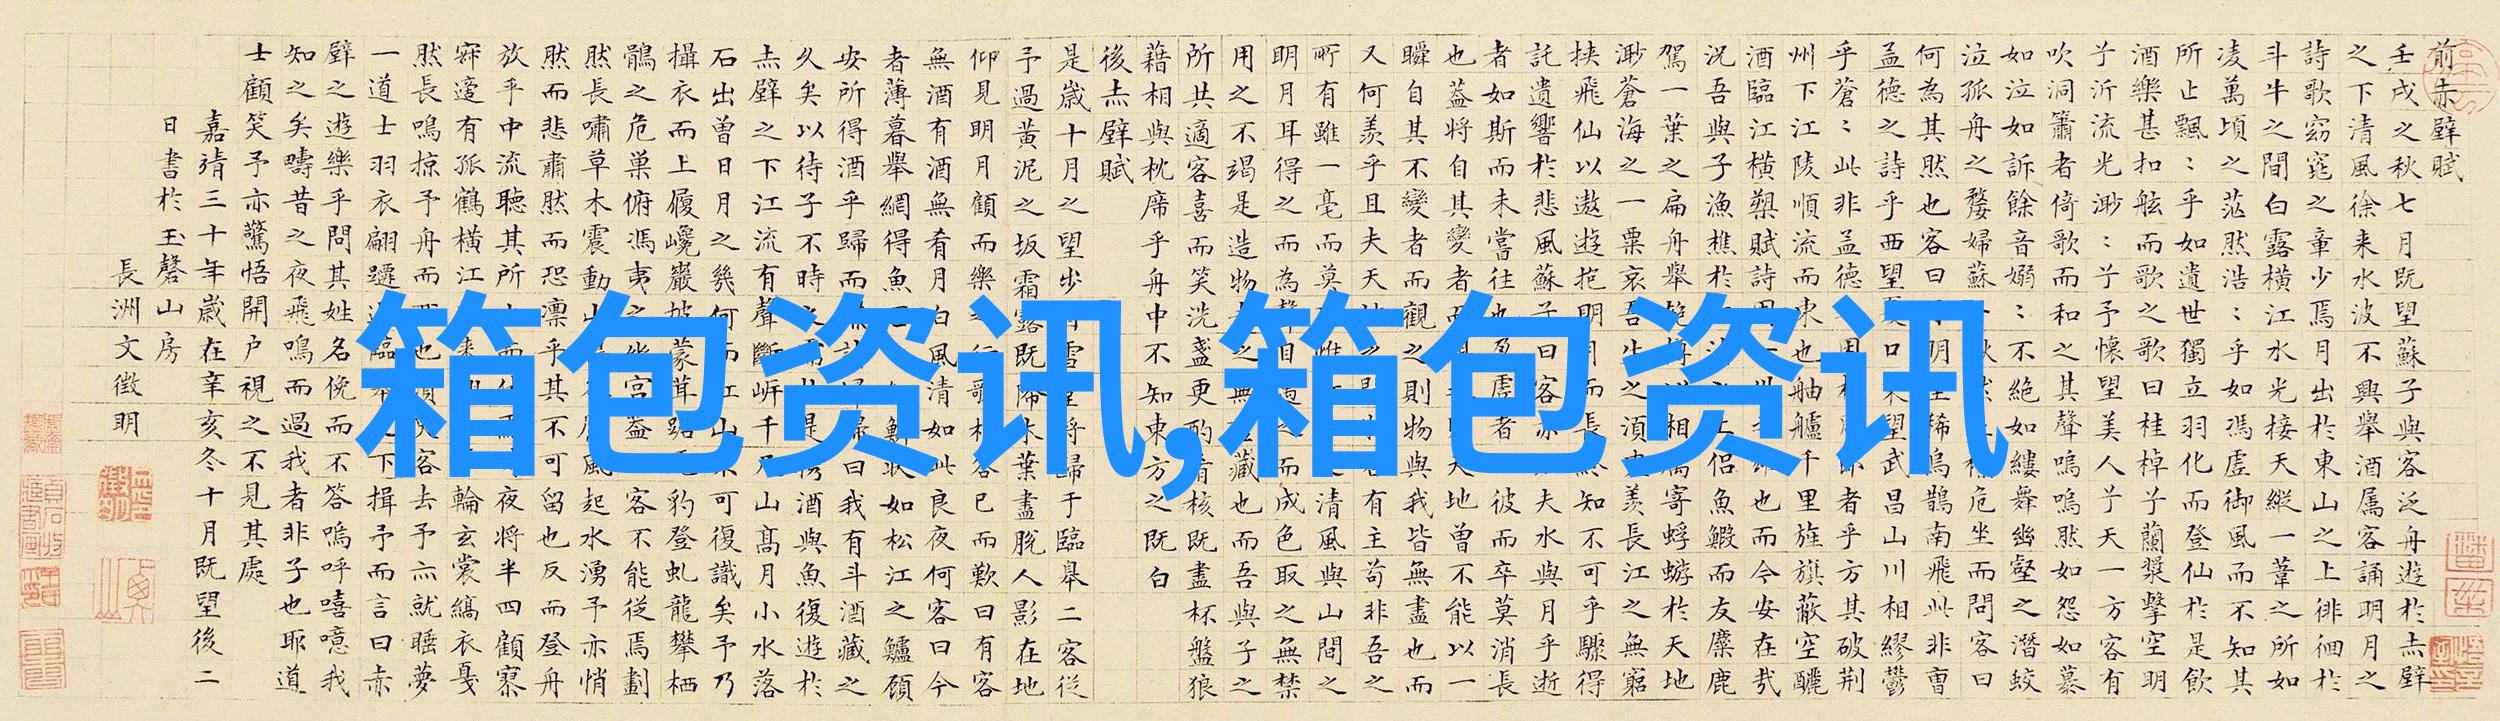 前赤壁賦
壬戌之秋七月既望蘇子與客泛舟遊於赤壁
之下清風徐来水波不興舉酒属客誦明月之
詩歌窈窕之章少焉月出於東山之上徘徊於
斗牛之間白露横江水光接天縱一葦之所如
凌萬頃之茫然浩﹕乎如馮虚御風而不知其
所止飄﹕乎如遺世獨立羽化而登仙於是飲
酒樂甚扣舷而歌之歌曰桂棹兮蘭槳擊空明
兮泝流光渺﹕兮予懷望美人兮天一方客有
吹洞簫者倚歌而和之其聲嗚嗚然如怨如慕
如泣如訴餘音嫋﹕不絶如縷舞幽壑之潛蛟
泣孤舟之嫠婦蘇危坐而問客曰
何為其然也客曰明稀烏鵲南飛此非曹
孟德之詩乎西望望武昌山川相繆鬱
乎蒼﹕此非孟德者乎方其破荆
州下江陵順流而東也舳艫千里旌旗蔽空釃
酒臨江横槊賦詩也而今安在哉
况吾與子漁樵於侣魚鰕而友麋鹿
駕一葉之扁舟舉相寄蜉蝣於天地
渺蒼海之一粟哀吾生之須羡長江之無窮
挟飛仙以遨遊抱明月而長終知不可乎驟得
託遺響於悲風蘇子曰客夫水與月乎逝
者如斯而未嘗往也盈虚者彼而卒莫消長
也盖將自其變者而天地曾不能以一
瞬自其不變者而觀之則物與我皆無盡也而
又何羨乎且夫天地之有主苟非吾之
所有雖一毫而莫清風與山間之
明月耳得之而為聲目之而成色取之無禁
用之不竭是造物之無藏也而吾與子之
所共適客喜而笑洗盞更酌肴核既盡杯盤狼
藉相與枕席乎舟中不知東方之既白
後赤壁賦
是歲十月之望步雪將歸于臨皋二客従
予過黄泥之坂霜露既降木葉盡脱人影在地
仰見明月顧而樂之行歌相答已而歎曰有客
無酒有酒無肴月白風清如此良夜何客曰今
者薄暮舉網得魚如松江之鱸顧
安所得酒乎歸而婦曰我有斗酒藏之
久矣以待子不時之需於是携酒與魚復遊於
赤壁之下江流有聲斷岸千尺山高月小水落
石出曽日月之幾何而江山不可復識矣予乃
攝衣而上履巉巖披蒙茸踞豹登虬龍攀栖
鶻之危巢俯馮夷之宫盖客不能従焉劃
然長嘯草木震動山風起水湧予亦悄
然而悲肅然而恐凛乎其不可留也反而登舟
放乎中流聽其所夜將半四顧寥
寂適有孤鶴横江輪玄裳縞衣戛
然長鳴掠予舟而西也客去予亦就睡夢
一道士羽衣翩躚過臨下揖予而言曰赤
壁之遊樂乎問其姓名俛而不答嗚呼噫嘻我
知之矣疇昔之夜飛鳴而過我者非子也耶道
士顧笑予亦驚悟開户視之不見其處
嘉靖三十年歲在辛亥冬十月既望後二
日書於玉磬山房
長洲文徵明
箱包资讯,箱包资讯